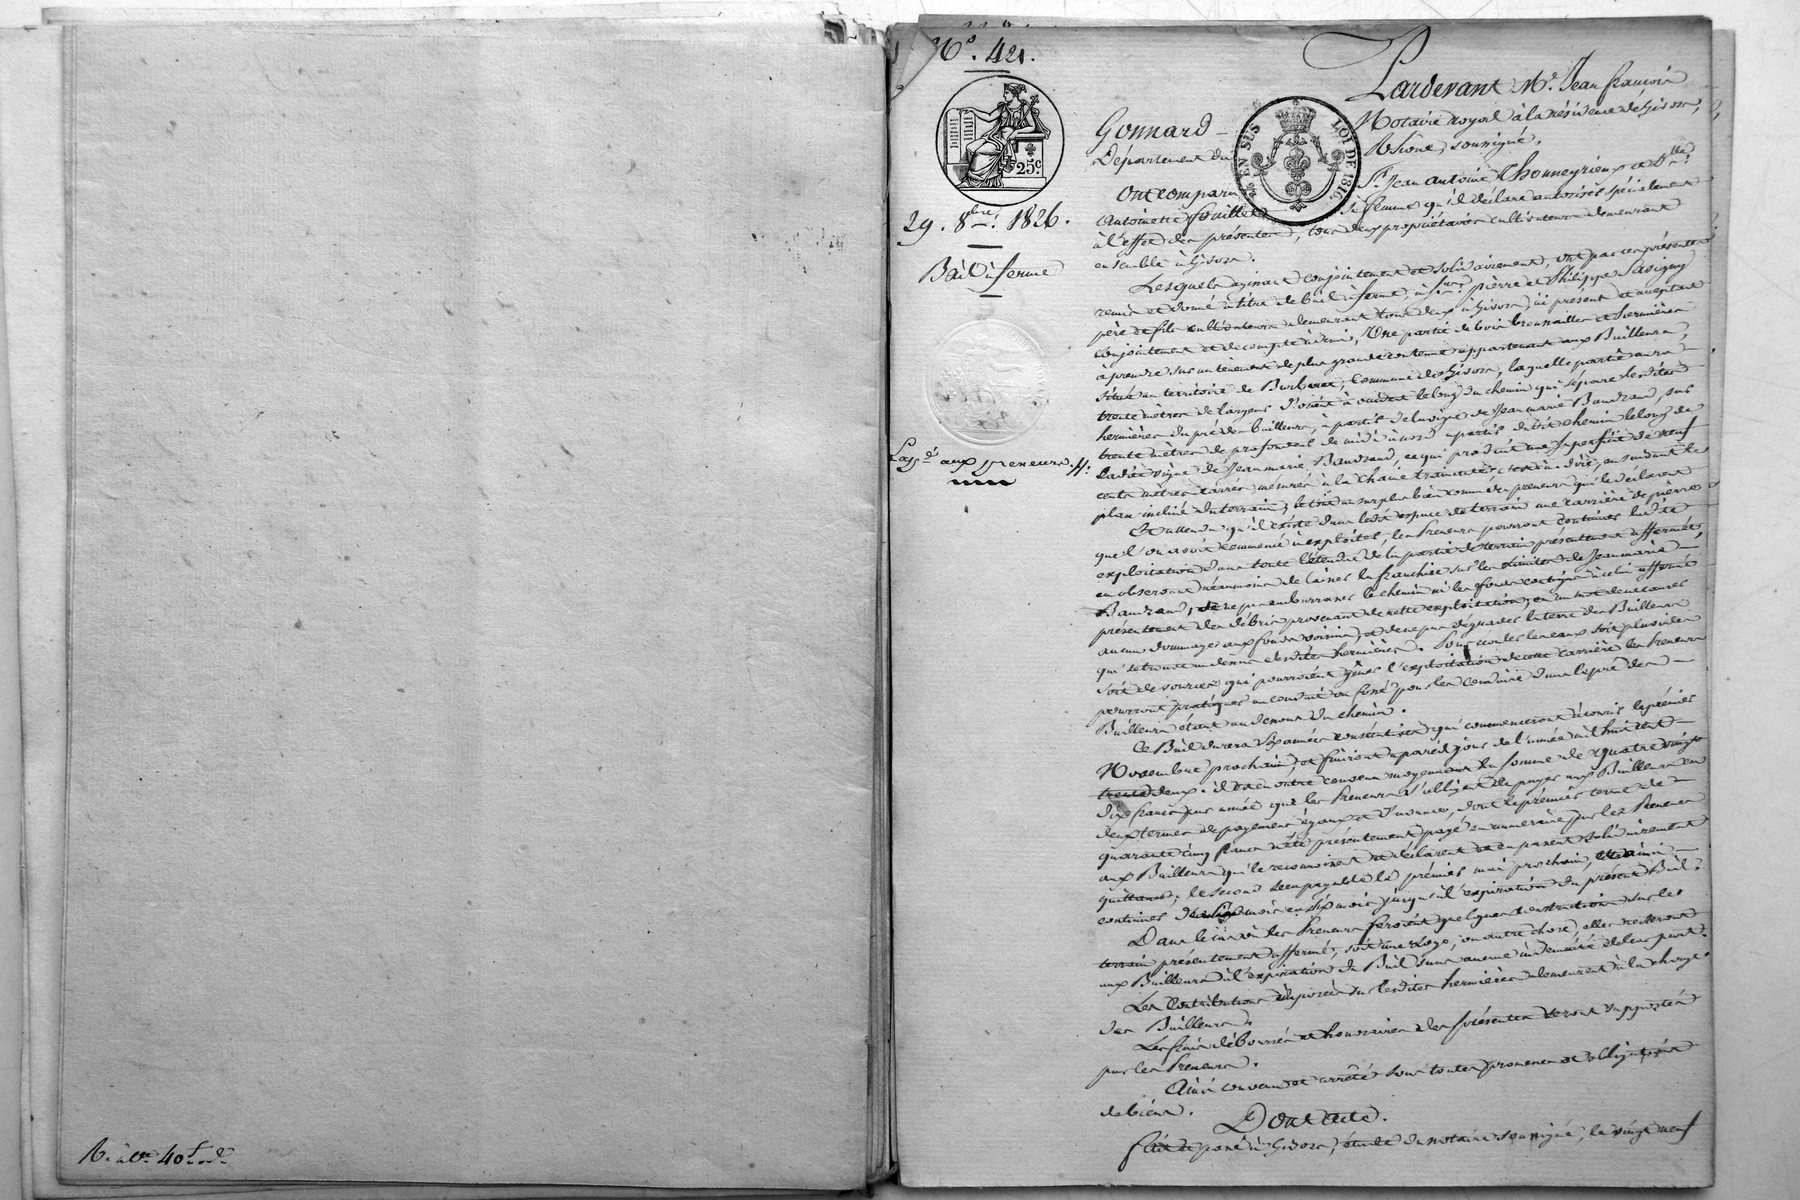 N° 421.
25 c.
29. 8bre. 1826.
Bail à ferme
aux preneurs.
EN SUS
LOI DE 1816
Pardevant Me. Jean François
Gonnard Notaire royal à la résidence de Givors,
Département du Rhône, soussigné.
Ont comparu Sr. Jean Antoine Chonneyrieux et Dlle.
Antoinette Fouillet sa femme qu'il déclare autoriser spécialement
à l'effet des présentes, tous deux propriétaires cultivateurs demeurant
ensemble à Givors.
Lesquels agissant conjointement et solidairement, ont par ces présentes
remis et donné à titre de bail à ferme, à Srs. pierre et Philippe Savigny
père et fils cultivateurs demeurant tous deux à Givors, ici présent et acceptant
conjointement et de compte à demi, Une partie de bois broussailles et hermières
à prendre sur un tènement de plus grande contenue appartenant aux Bailleurs,
situé au territoire de commune de Givors, laquelle partie aura
trente mètres de largeur d'orient à occident le long du chemin qui sépare lesdites
hermières du pré des bailleurs, à partir de la vigne de Jean marie Baudrand, sur
trente mètres de profondeur de midi à nord à partir dudit chemin le long de
ladite vigne de Jean marie Baudrand, ce qui produit une superficie de neuf
cents mètres carrés, mesurés à la chaîne, c'est à dire, en suivant le
plan incliné du terrain; le tout au surplus bien connu des preneurs qui le déclarent.
Et attendu qu'il existe dans ledit espace de terrain une carrière de pierre
que l'on avoit commencé à exploiter, les Preneurs pourront continuer ladite
exploitation dans toute l'étendue de la partie de terrain présentement affermée,
en observant néanmoins de laisser la franchise sur les limites de Jean marie
Baudrand, de ne pas embourraser le chemin ni les fonds contigus à celui affermé
présentement des débris provenant de cette exploitation, en un mot de ne causer
aucun dommage aux fonds voisins, et de ne pas dégrader la terre des Bailleurs
qui se trouve au dessus desdites hermières. Pour écouler les eaux soit pluviales
soit de sources qui pourroient gêner l'exploitation de cette carrière les Preneurs
pourront pratiquer un conduit ou fossé pour les conduire dans le pré des
Bailleurs étant au dessous du chemin.
Ce Bail durera six années consécutives, qui commenceront à courir le premier
Novembre prochain, et finiront à pareil jour de l'année mil huit cent
trente deux. il est en outre convenu moyennant la somme de quatre vingt
dix francs par année que les Preneurs s'obligent de payer aux Bailleurs en
deux termes de payement égaux et d'avance, dont le premier terme de
quarante cinq francs a été présentement payé en numéraire par les Preneurs
aux Bailleurs qui le reconnoissent et déclarent et en passent solidairement
quittance, le second sera payable le premier mai prochain, et ainsi
continuer de six mois en six mois jusqu'à l'expiration du présent Bail.
Dans le cas où les Preneurs feroient quelques constructions sur le
terrain présentement affermé, soit une loge, ou autre chose, elles resteront
aux Bailleurs à l'expiration du Bail sans aucune indemnité de leur part.
Les Contributions imposées sur lesdites hermières demeurent à la charge
des Bailleurs.
Les frais déboursés et honoraires des présentes seront supportés
par les Preneurs.
Ainsi convenu et arrêté sous toutes promesses et obligations
de biens.
Dont acte.
fait et passé à Givors, étude du notaire soussigné, le vingt neuf